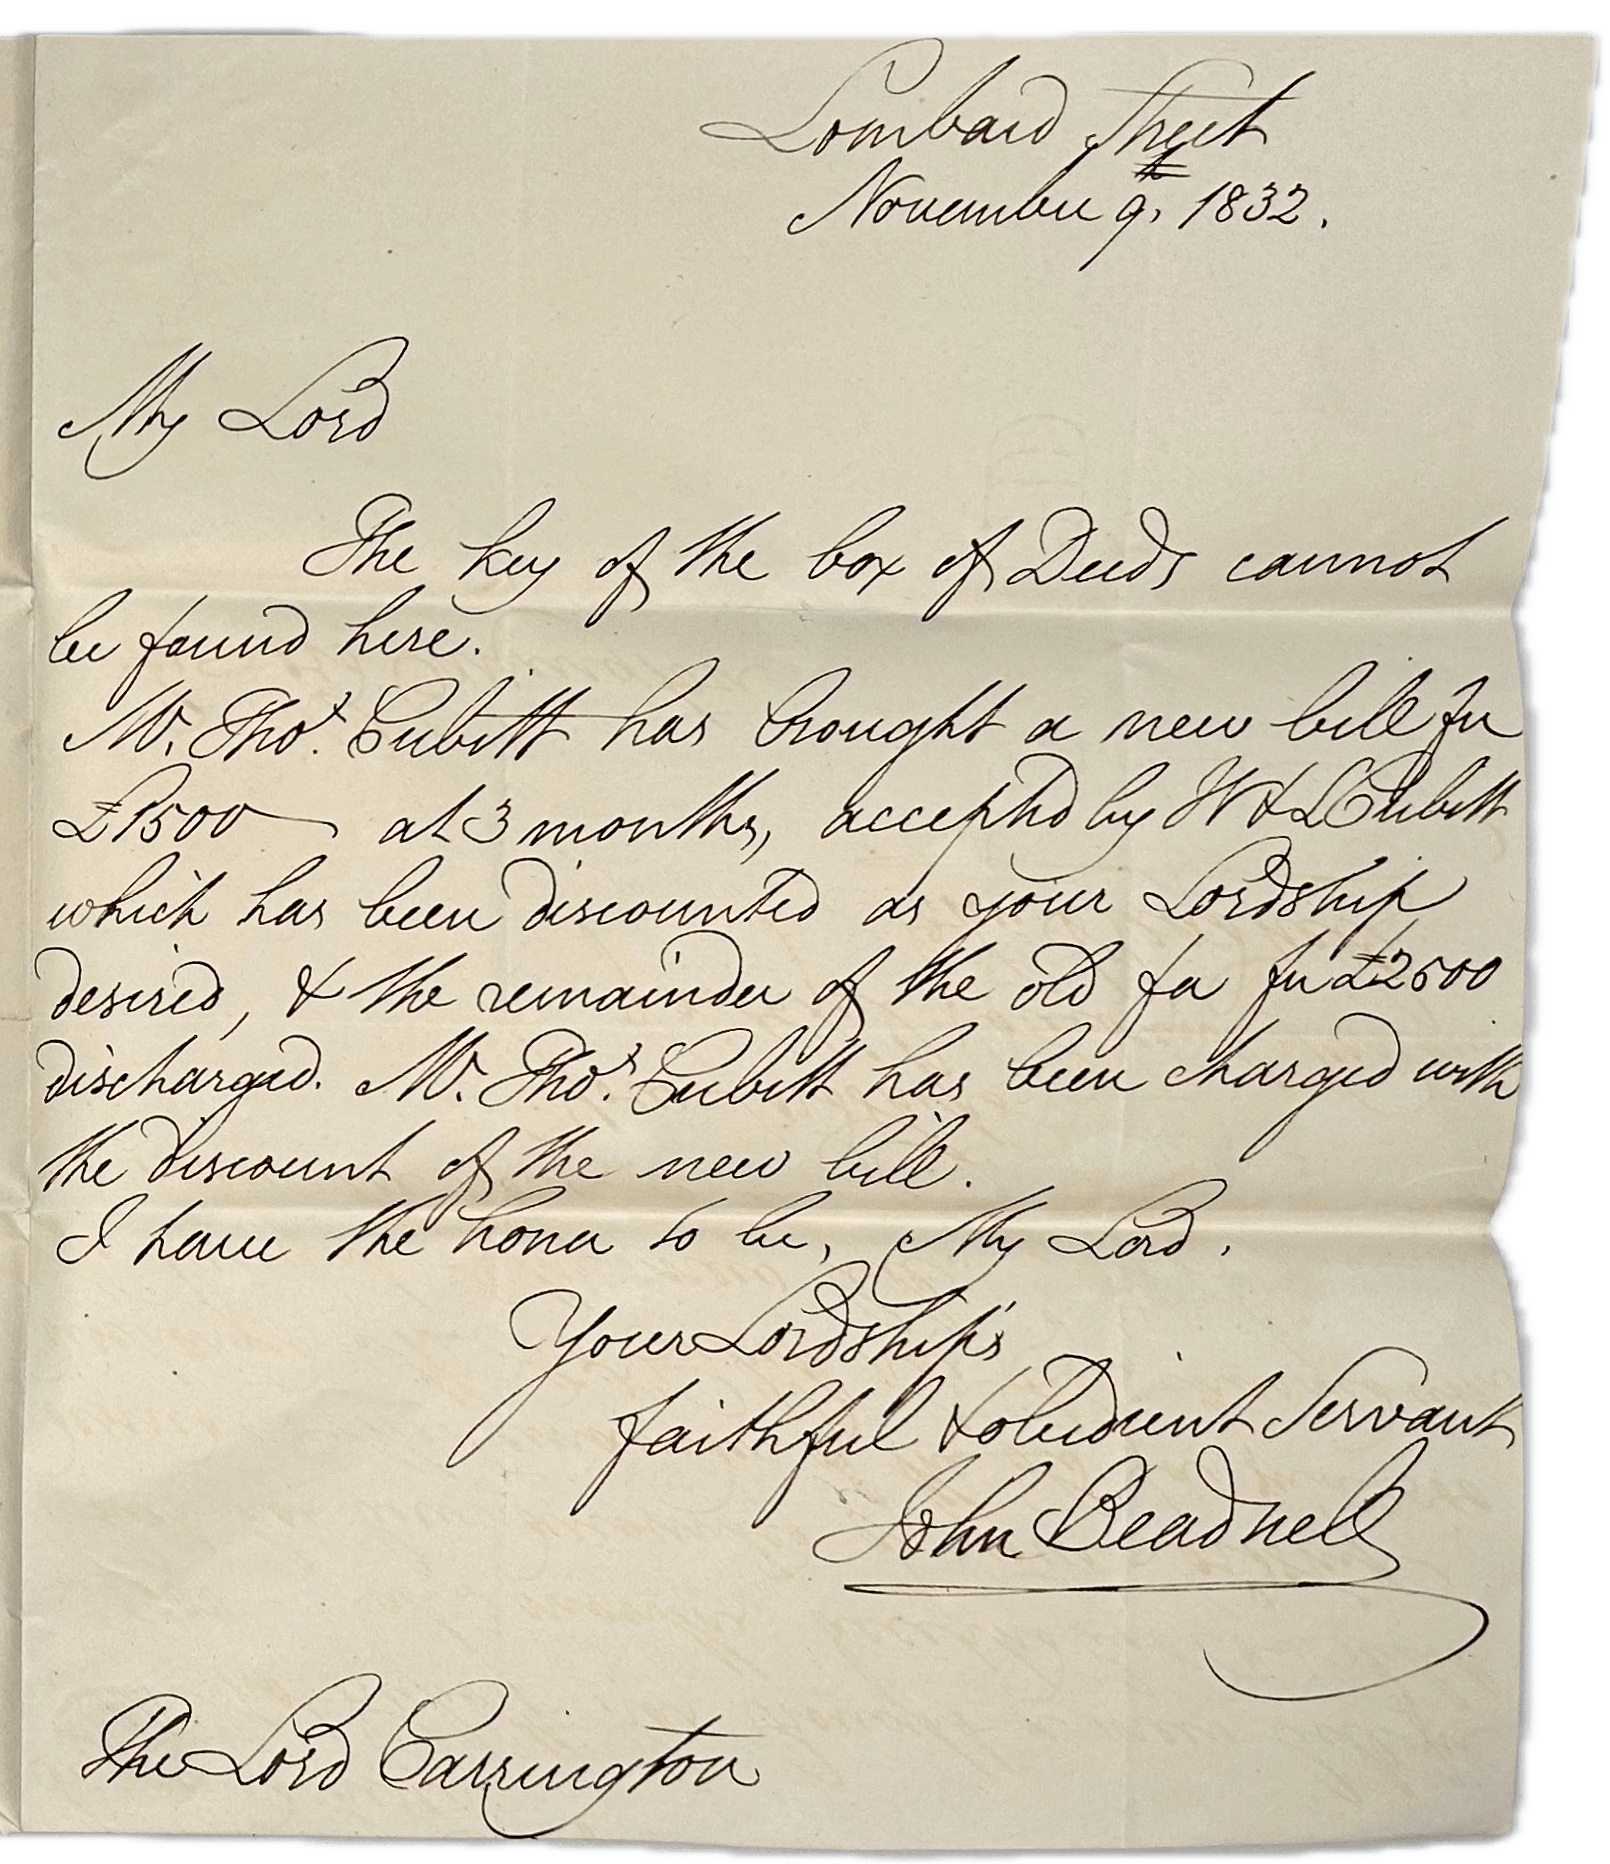 Lombard Street
November 9th, 1832.
My Lord
The key of the box of Deeds cannot
be found here.
Mr. Thos. Cubitt has brought a new bill for
£1500 at 3 months, accepted by W & L Cubitt
which has been discounted as your Lordship
desired, & the remainder of the old for £2500
discharged. Mr. Thos. Cubitt has been charged with
the discount of the new bill.
I have the honor to be, My Lord,
Your Lordship's
faithful & obedient Servant
John Beadnell
The Lord Carrington